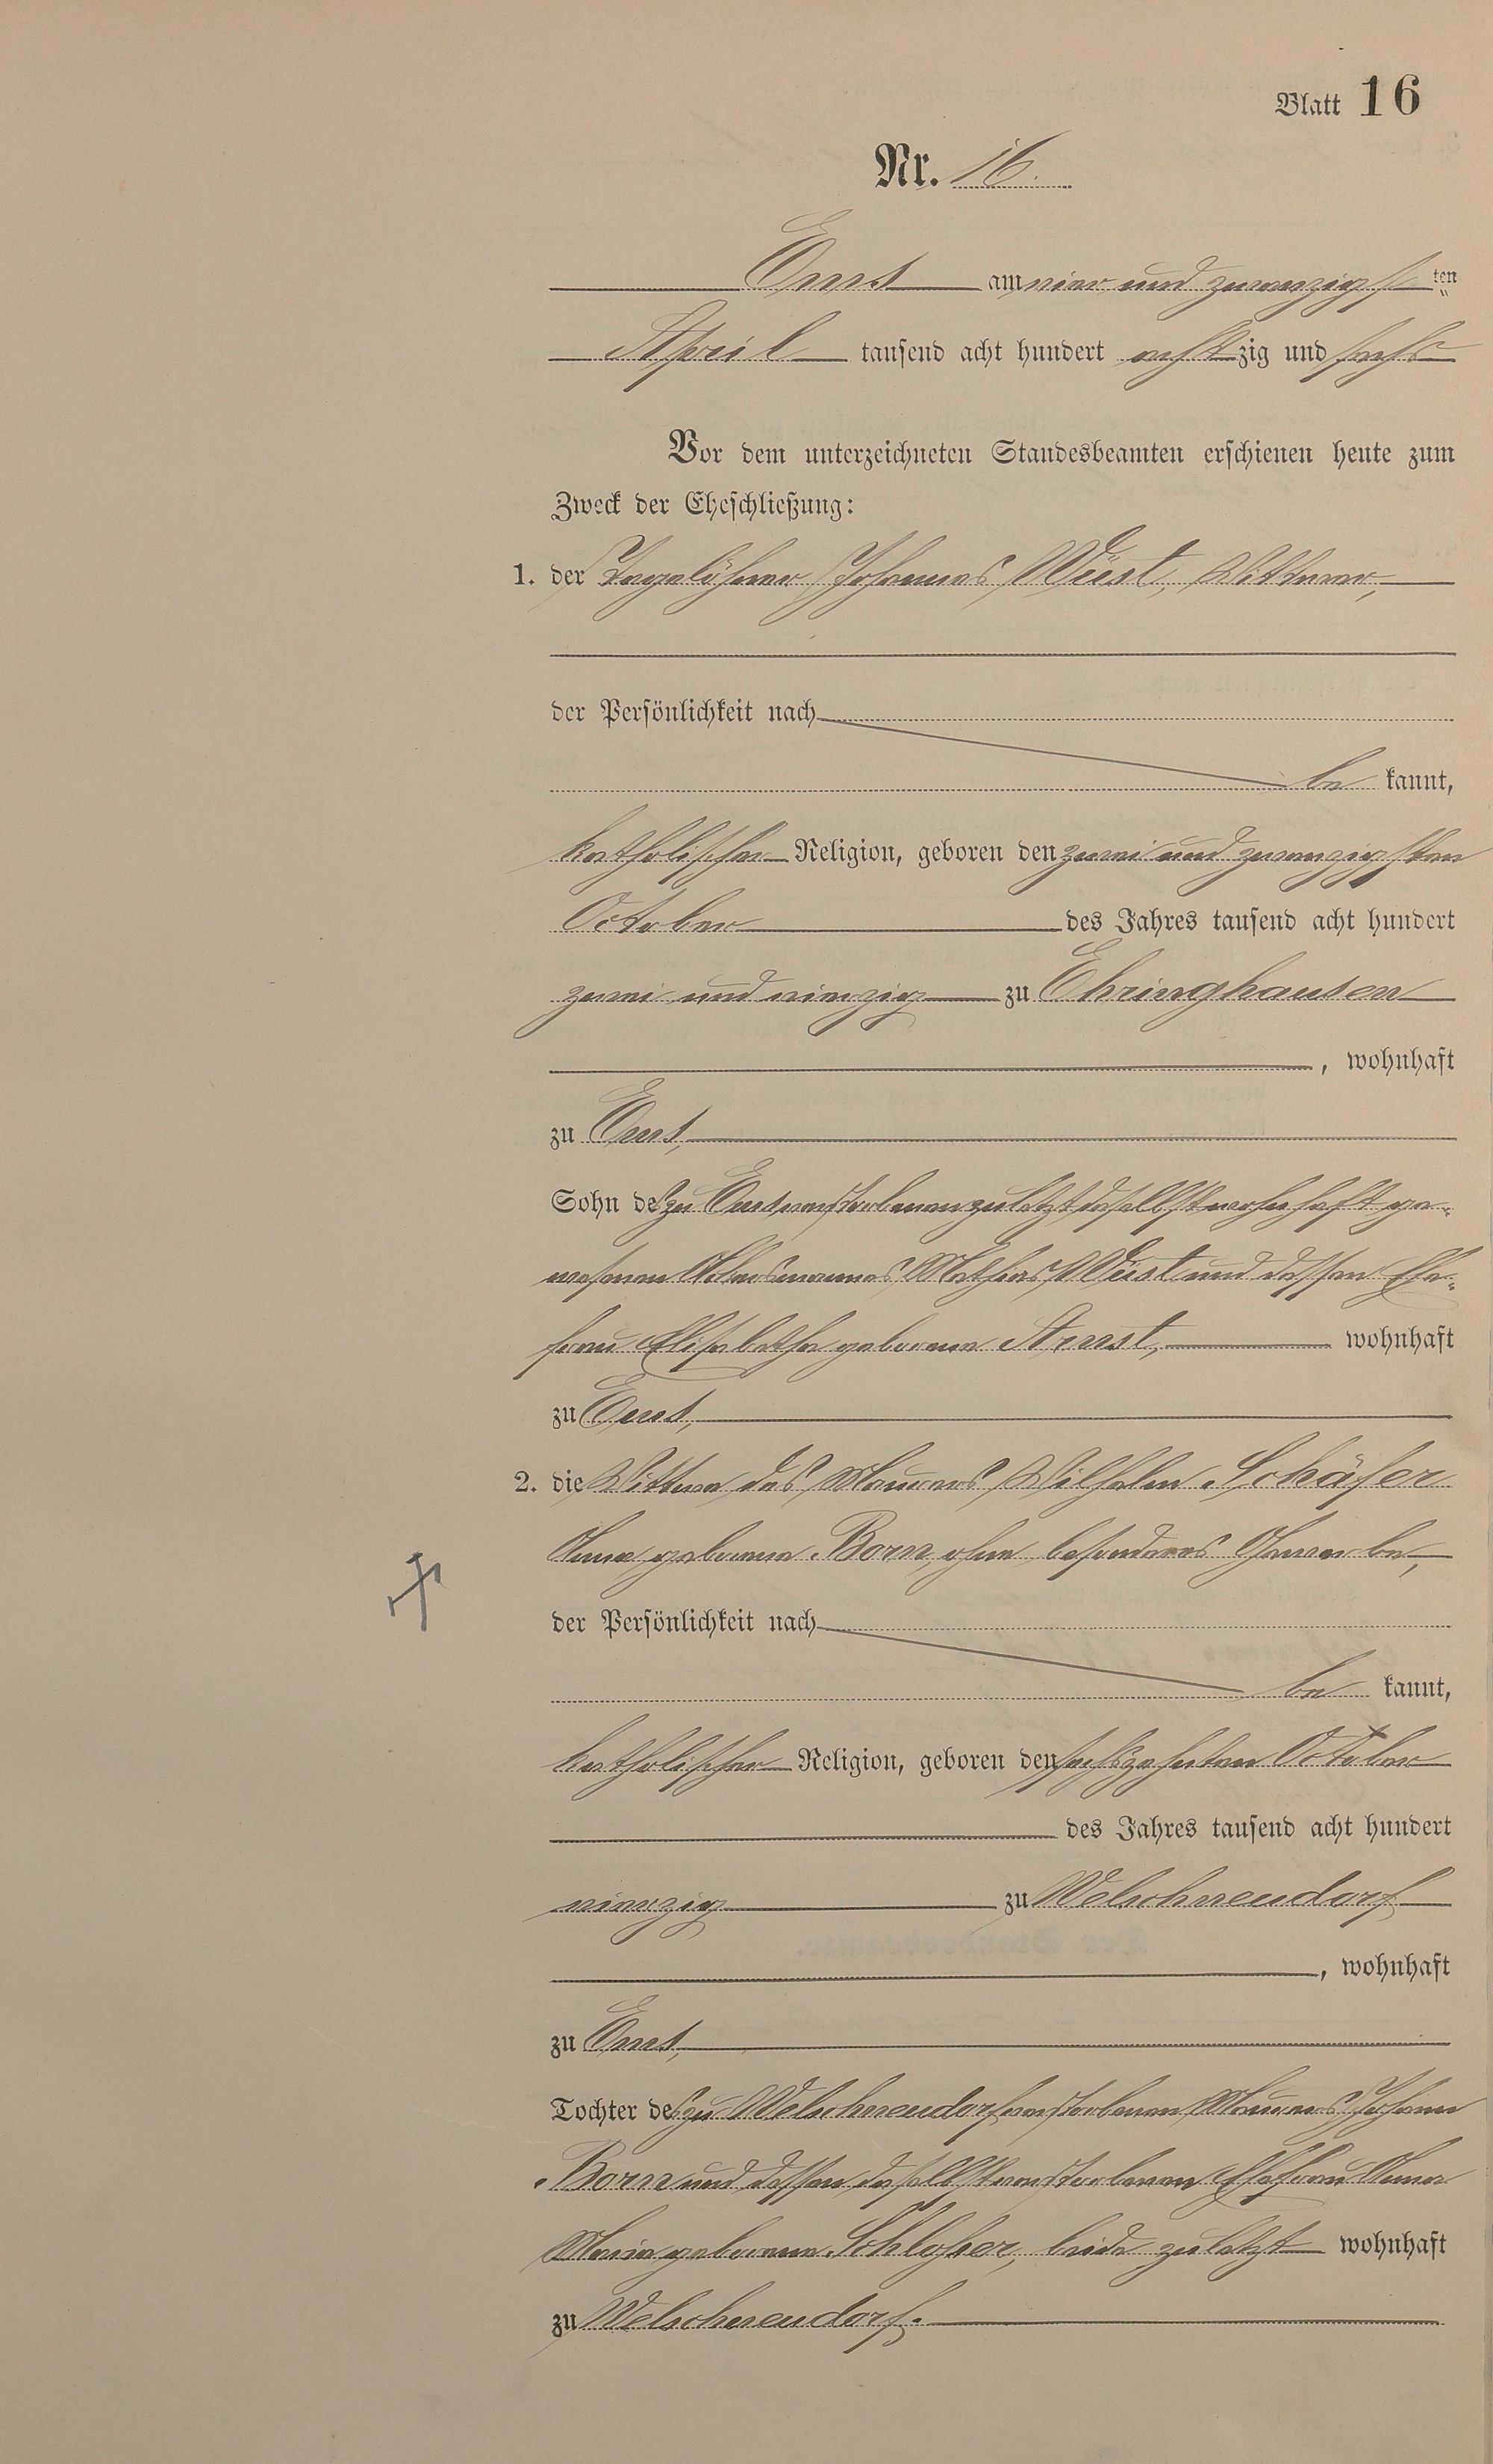 Blatt 16
Nr. 16.
Ems am vier und zwanzigsten
April tausend acht hundert achtzig und sechs
Vor dem unterzeichneten Standesbeamten erschienen heute zum
Zweck der Eheschließung:
1. der Tagelöhner Johannes Wüst, Wittwer,
der Persönlichkeit nach
be kannt,
katholischer Religion, geboren den zwei und zwanzigsten
October des Jahres tausend acht hundert
zwei und vierzig zu Ehringhausen
, wohnhaft
zu Ems,
Sohn des zu Ems verstorbenen zuletzt daselbst wohnhaft ge-
wesenen Mathias Wüst und dessen Ehe-
frau Elisabetha geborene wohnhaft
zu Ems,
2. die Wittwe des Maurers Wilhelm Schäfer
Anna geborene Born, ohne besonderes Gewerbe,
der Persönlichkeit nach
be kannt,
katholischer Religion, geboren den sechszehnten October
des Jahres tausend acht hundert
vierzig zu Welschneudorf
, wohnhaft
zu Ems,
Tochter des zu Welschneudorf verstorbenen Maurers Johann
Born und dessen daselbst verstorbenen Ehefrau Anna
Maria geborene Schloßer, beide zuletzt wohnhaft
zu Welschneudorf.